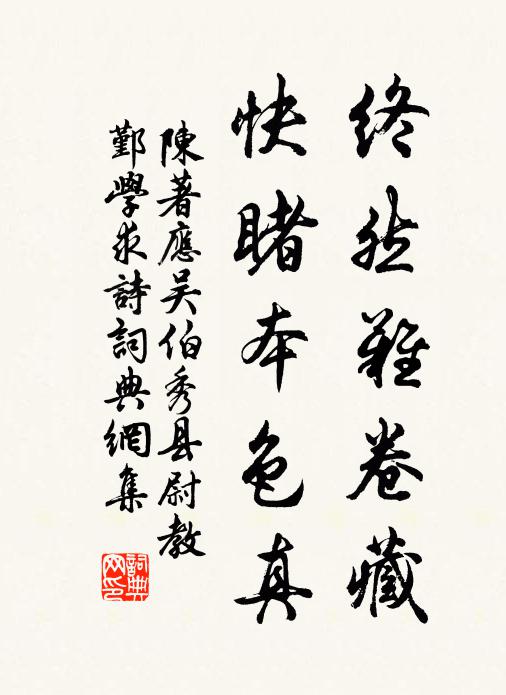 終然難卷藏
快睹本色真
陳著應吴伯秀县尉教
鄞學求詩詞典網集
詞典
网印